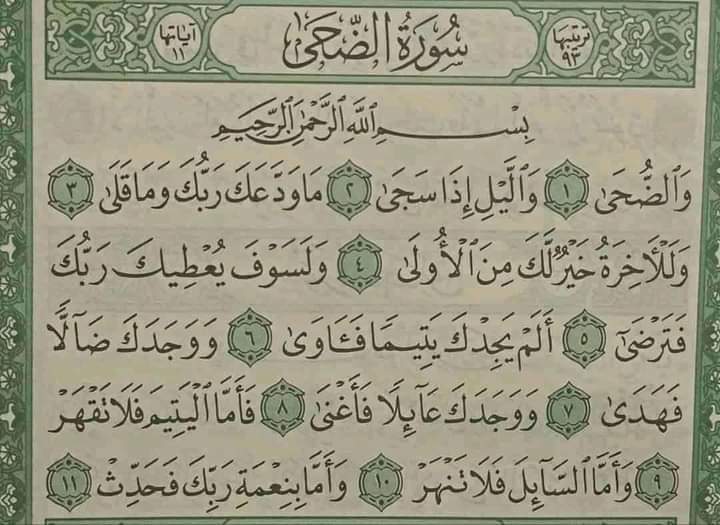 ترتيبها ٩٣ سُورَةُ الضُّحَىٰ آياتها ١١
بِسْمِ ٱللَّهِ ٱلرَّحْمَٰنِ ٱلرَّحِيمِ
وَٱلضُّحَىٰ ١ وَٱلَّيْلِ إِذَا سَجَىٰ ٢ مَا وَدَّعَكَ رَبُّكَ وَمَا قَلَىٰ ٣
وَلَلْأَخِرَةُ خَيْرٌ لَّكَ مِنَ ٱلْأُولَىٰ ٤ وَلَسَوْفَ يُعْطِيكَ رَبُّكَ
فَتَرْضَىٰٓ ٥ أَلَمْ يَجِدْكَ يَتِيمًا فَـَٔاوَىٰ ٦ وَوَجَدَكَ ضَآلًّا
فَهَدَىٰ ٧ وَوَجَدَكَ عَآئِلًا فَأَغْنَىٰ ٨ فَأَمَّا ٱلْيَتِيمَ فَلَا تَقْهَرْ
٩ وَأَمَّا ٱلسَّآئِلَ فَلَا تَنْهَرْ ١٠ وَأَمَّا بِنِعْمَةِ رَبِّكَ فَحَدِّثْ ١١